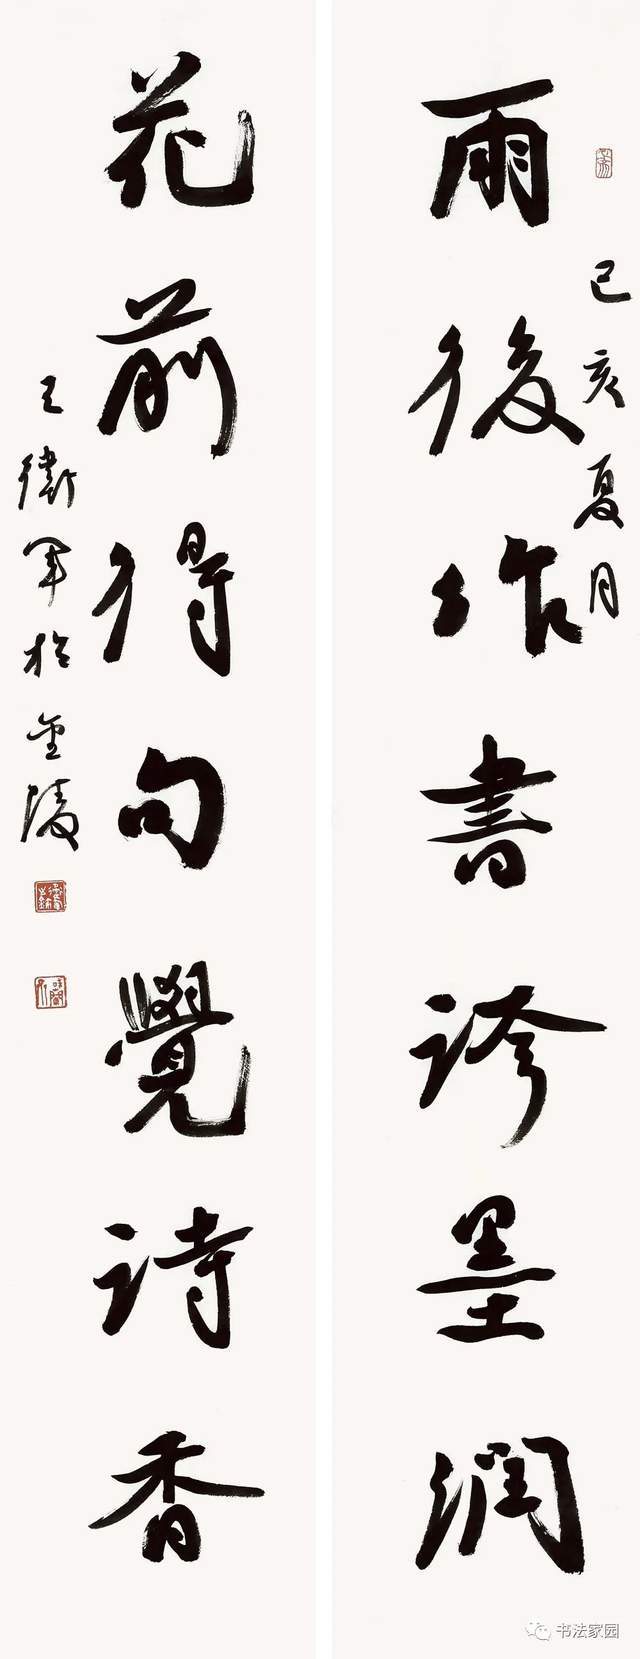 雨後作書誇墨潤
己亥夏月
花前得句覺詩香
王衛軍於金陵
书法家园